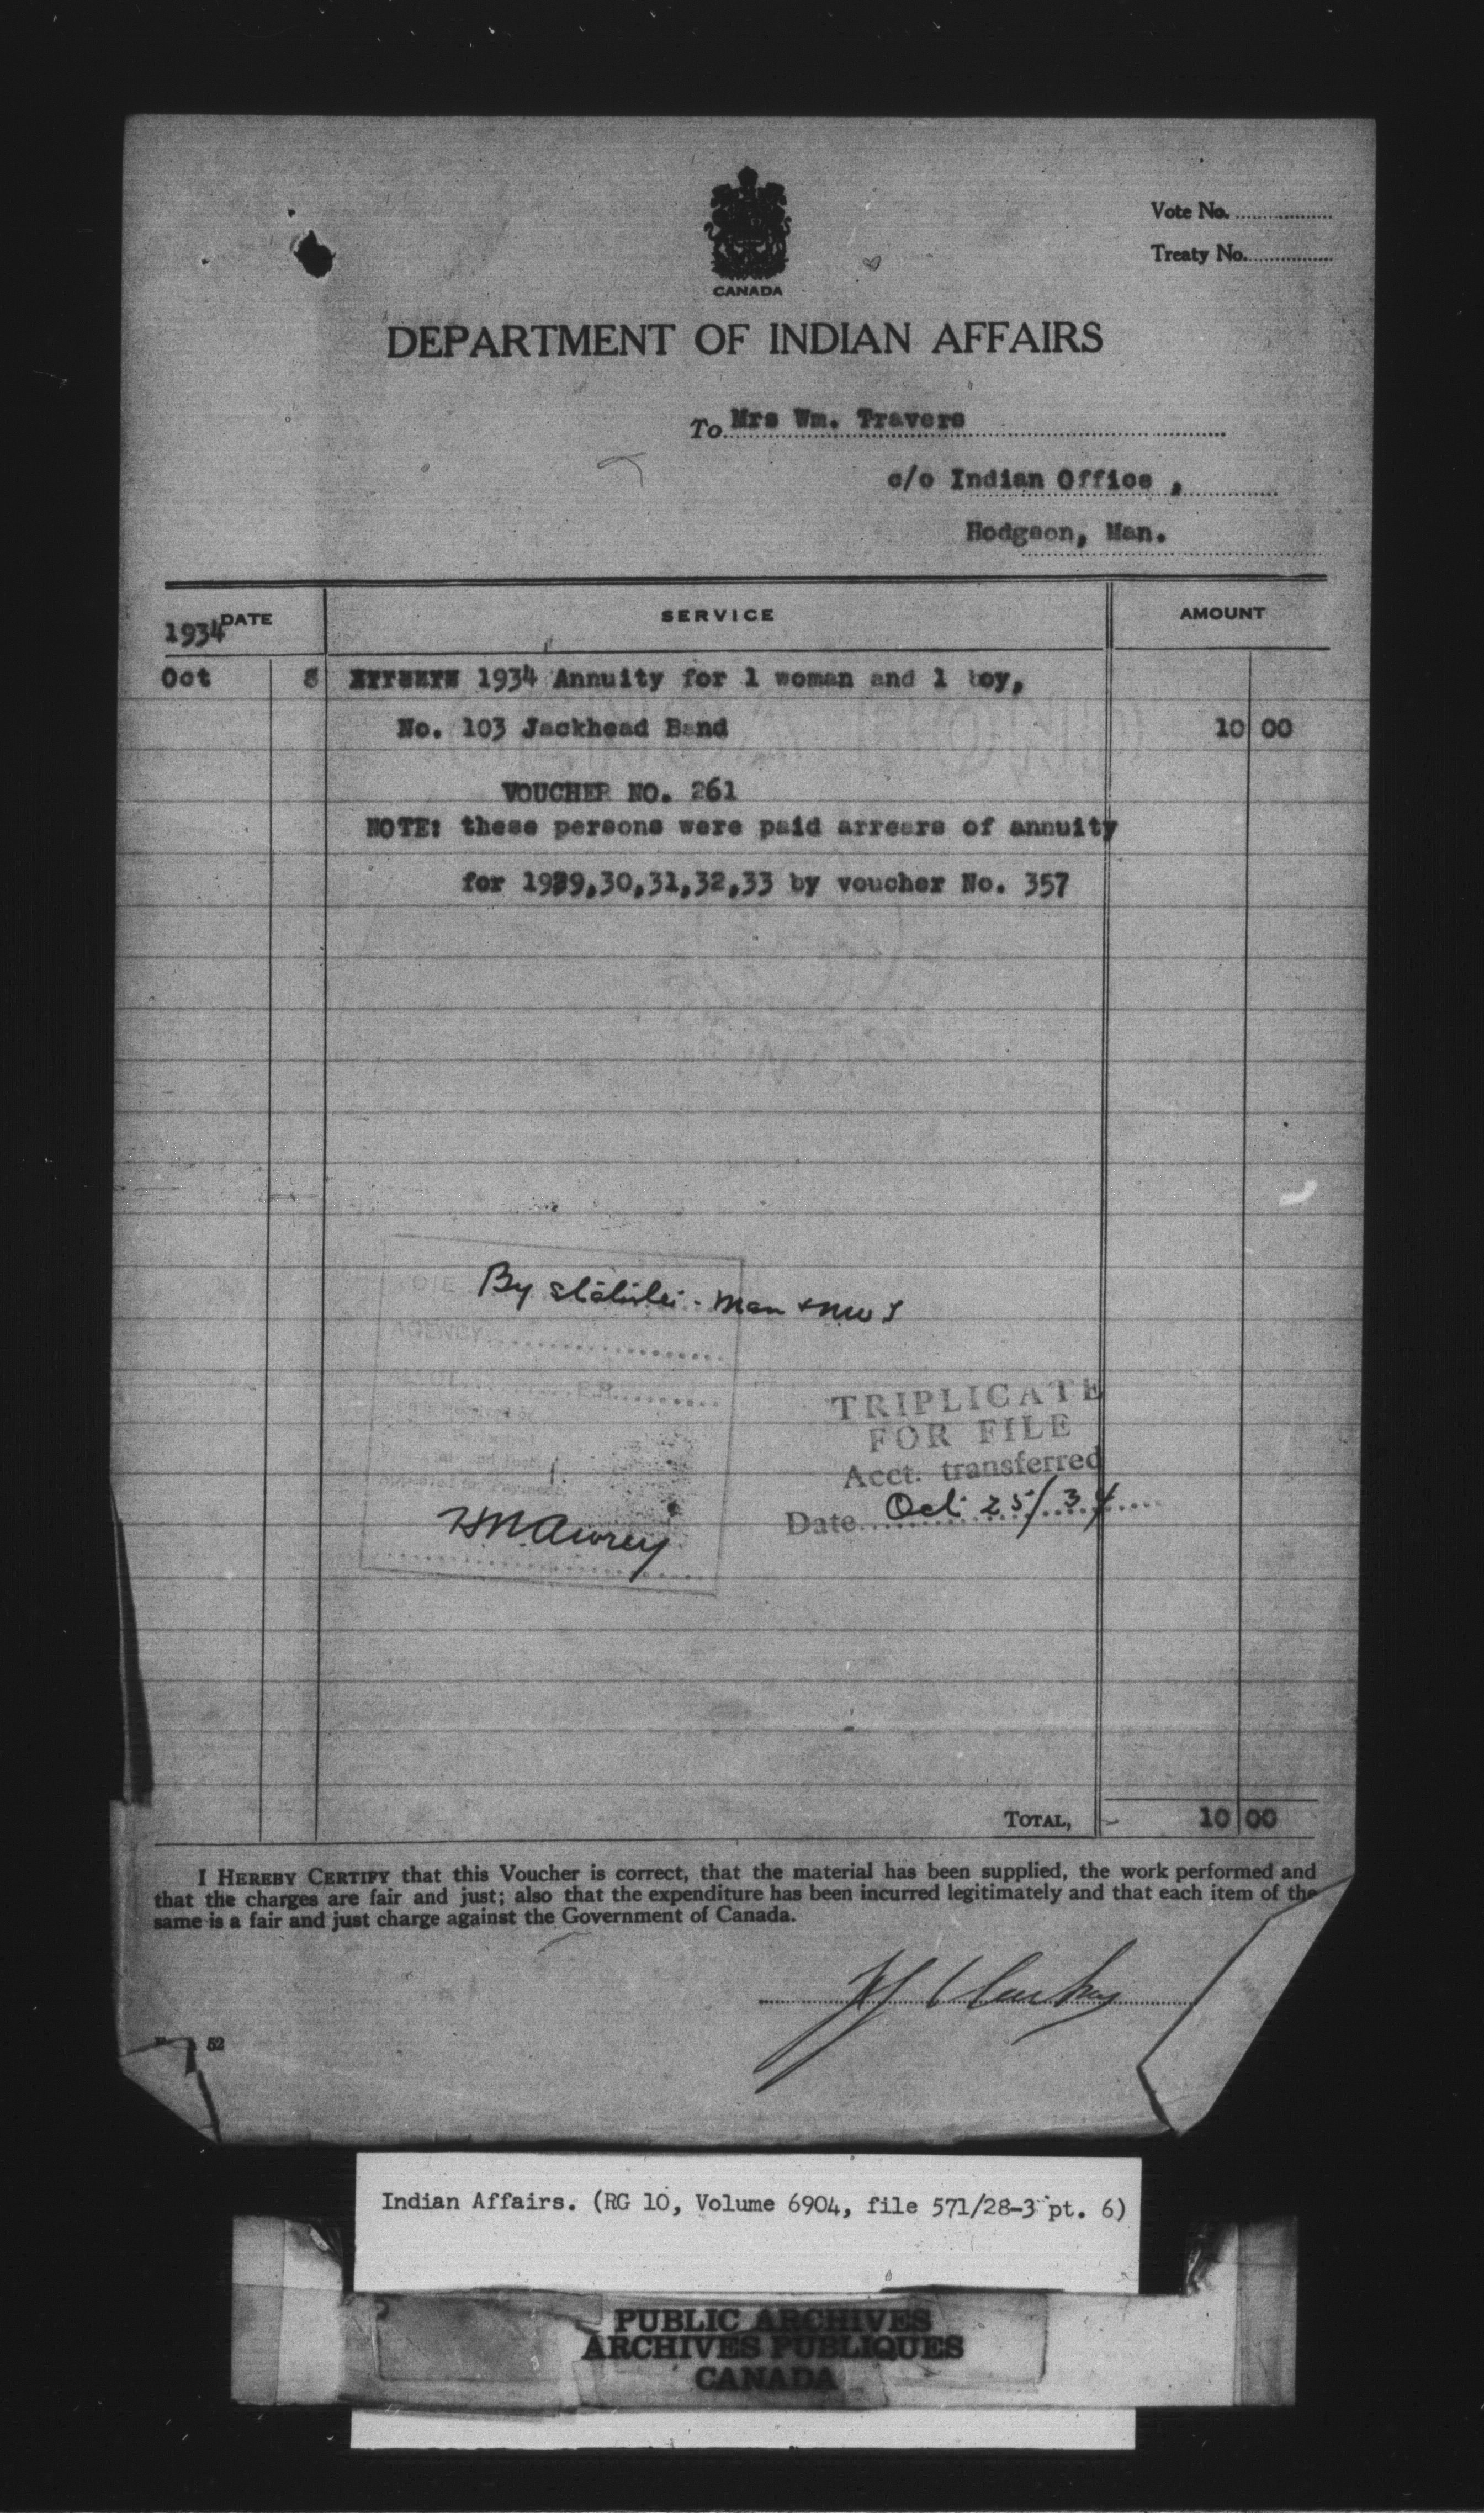 Vote No.
Treaty No.
CANADA
DEPARTMENT OF INDIAN AFFAIRS
To Mrs Wm. Travers
c/o Indian Office ,
Hodgson, Man.
DATE SERVICE AMOUNT
1934
Oct 8 1934 Annuity for 1 woman and 1 boy,
No. 103 Jackhead Band 10 00
VOUCHER NO. 261
NOTE: these persons were paid arrears of annuity
for 1929,30,31,32,33 by voucher No. 357
By - Man + NW
AGENCY
TRIPLICATE
FOR FILE
Acct. transferred
Date Oct 25/34
TOTAL, 10 00
I HEREBY CERTIFY that this Voucher is correct, that the material has been supplied, the work performed and
that the charges are fair and just; also that the expenditure has been incurred legitimately and that each item of the
same is a fair and just charge against the Government of Canada.
52
Indian Affairs. (RG 10, Volume 6904, file 571/28-3 pt. 6)
PUBLIC ARCHIVES
ARCHIVES PUBLIQUES
CANADA